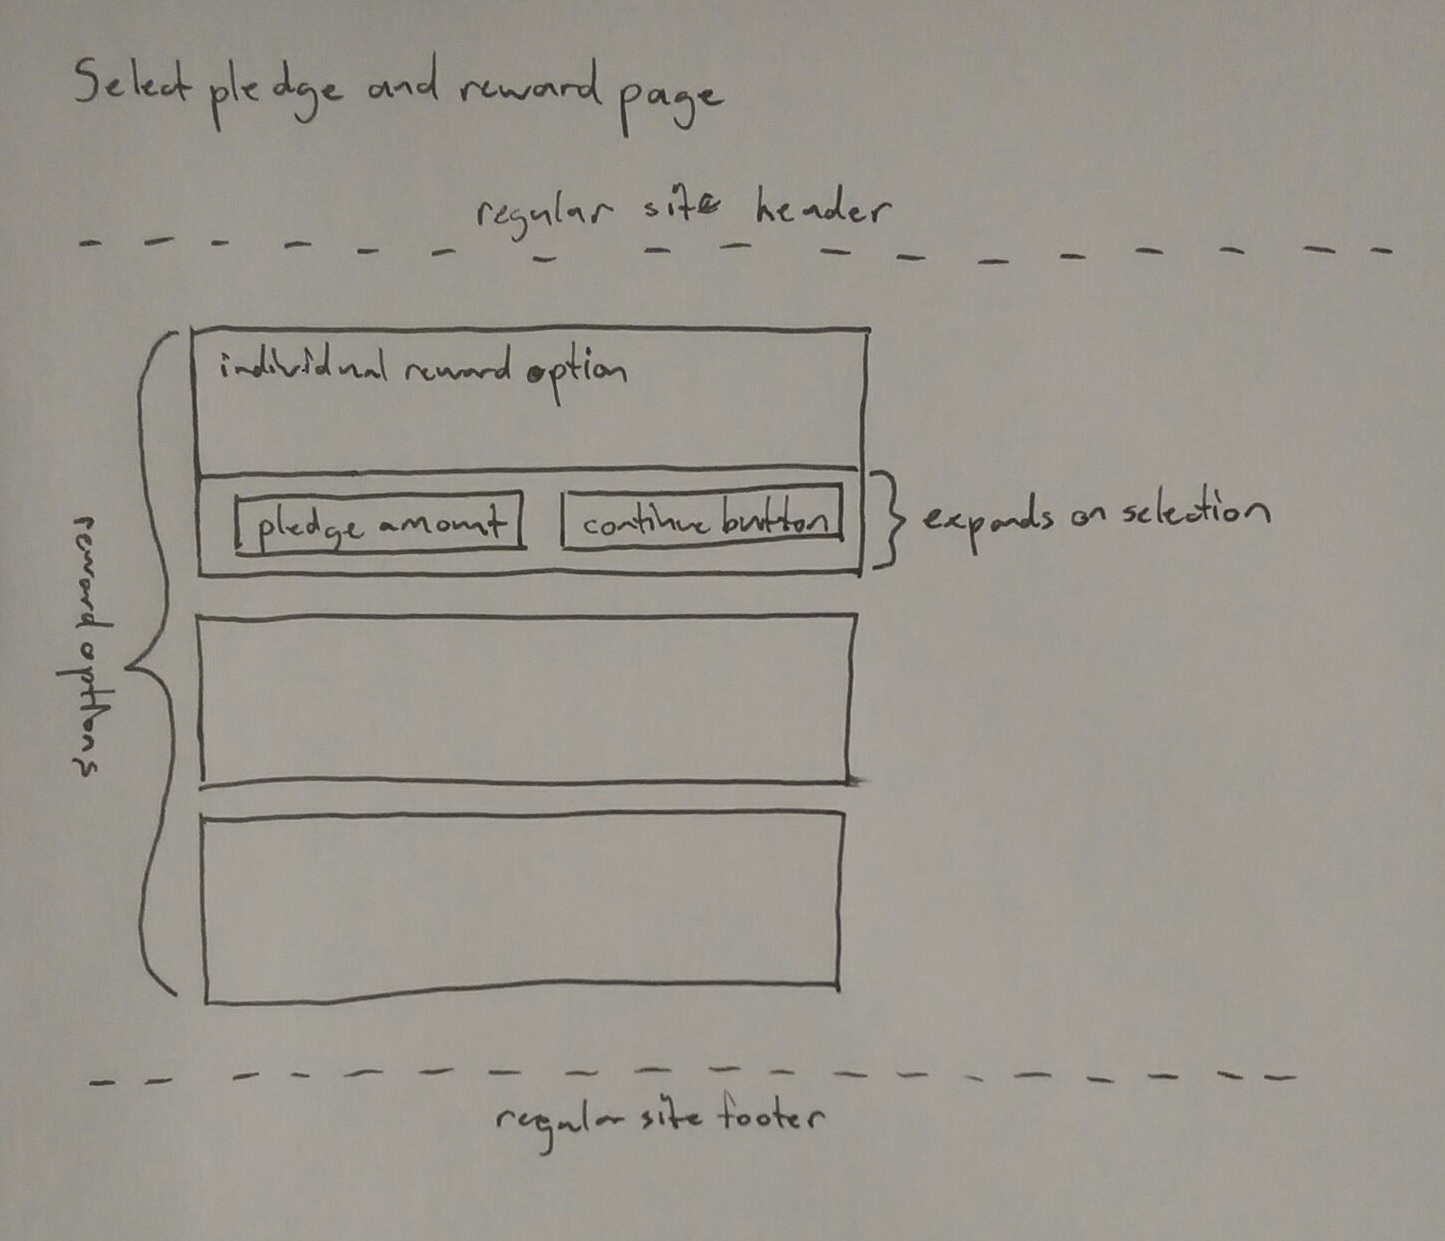 Select pledge and reward page
regular site header
individual reward option
pledge amount
continue button
expands on selection
reward options
regular site footer